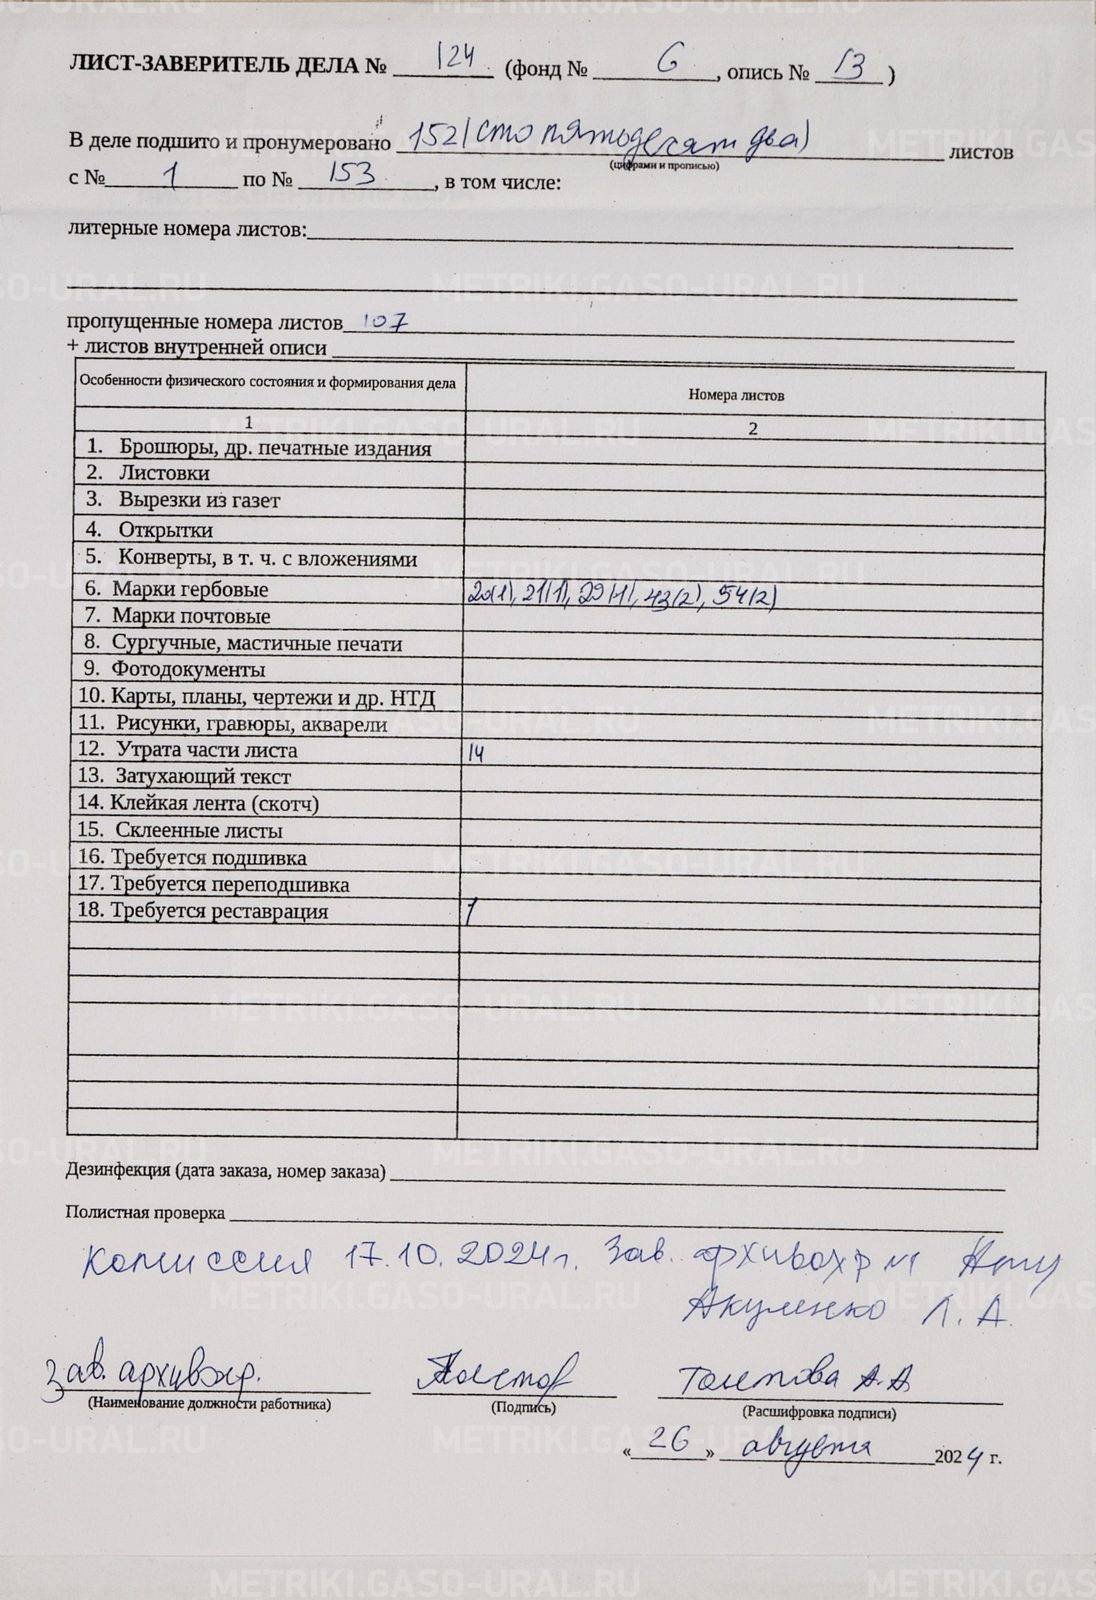 ЛИСТ-ЗАВЕРИТЕЛЬ ДЕЛА № 124 (фонд № 6, опись № 13)
В деле подшито и пронумеровано 152 (сто пятьдесят два) листов
(цифрами и прописью)
с № 1 по № 153, в том числе:
литерные номера листов:
пропущенные номера листов 107
+ листов внутренней описи
Особенности физического состояния и формирования дела Номера листов
1 2
1. Брошюры, др. печатные издания
2. Листовки
3. Вырезки из газет
4. Открытки
5. Конверты, в т. ч. с вложениями
6. Марки гербовые 20(1), 21(1), 29(1), 43(2), 54(2)
7. Марки почтовые
8. Сургучные, мастичные печати
9. Фотодокументы
10. Карты, планы, чертежи и др. НТД
11. Рисунки, гравюры, акварели
12. Утрата части листа 14
13. Затухающий текст
14. Клейкая лента (скотч)
15. Склеенные листы
16. Требуется подшивка
17. Требуется переподшивка
18. Требуется реставрация 1
Дезинфекция (дата заказа, номер заказа)
Полистная проверка
Комиссия 17.10.2024г. Зав. архивохр
Акуленко Л. А.
зав. архивохр. Толстова А.А
(Наименование должности работника) (Подпись) (Расшифровка подписи)
«26» августа 2024 г.
METRIKI.GASO-URAL.RU